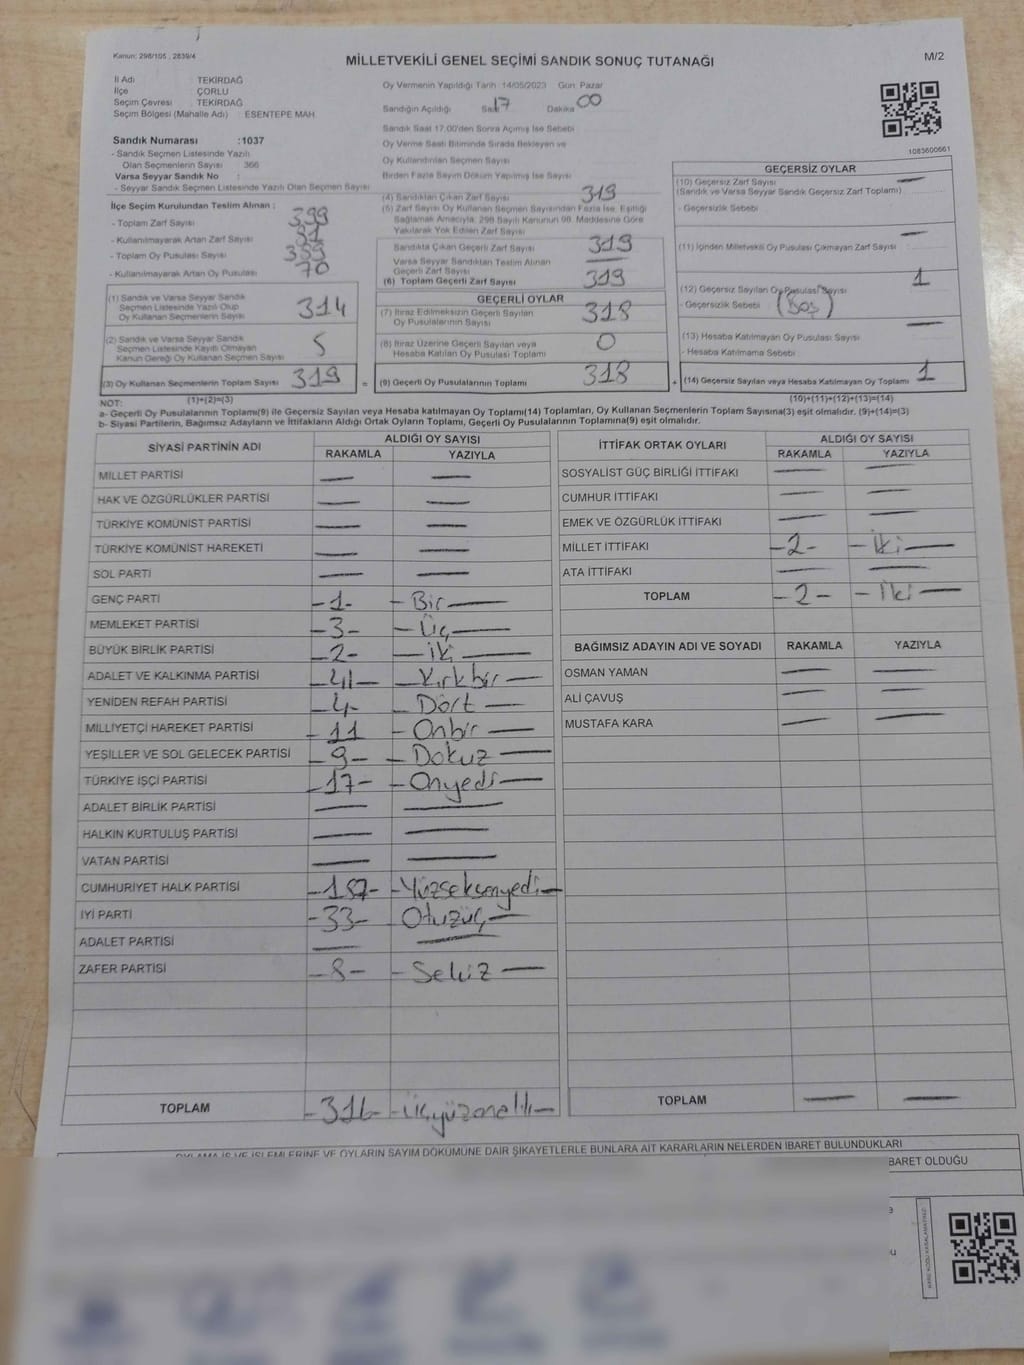 Kanun: 298/105 , 2839/4
MİLLETVEKİLİ GENEL SEÇİMİ SANDIK SONUÇ TUTANAĞI
M/2
İl Adı : TEKİRDAĞ
İlçe : ÇORLU
Seçim Çevresi : TEKİRDAĞ
Seçim Bölgesi (Mahalle Adı) : ESENTEPE MAH.
Oy Vermenin Yapıldığı Tarih :14/05/2023 Gün: Pazar
Sandığın Açıldığı Saat 17 Dakika 00
Sandık Saat 17:00'den Sonra Açılmış İse Sebebi
Oy Verme Saati Bitiminde Sırada Bekleyen ve
Oy Kullandırılan Seçmen Sayısı
Birden Fazla Sayım Döküm Yapılmış İse Sayısı
1083600661
Sandık Numarası :1037
- Sandık Seçmen Listesinde Yazılı
Olan Seçmenlerin Sayısı 366
Varsa Seyyar Sandık No :
- Seyyar Sandık Seçmen Listesinde Yazılı Olan Seçmen Sayısı
İlçe Seçim Kurulundan Teslim Alınan :
- Toplam Zarf Sayısı
- Kullanılmayarak Artan Zarf Sayısı
- Toplam Oy Pusulası Sayısı
- Kullanılmayarak Artan Oy Pusulası 70
(1) Sandık ve Varsa Seyyar Sandık
Seçmen Listesinde Yazılı Olup
Oy Kullanan Seçmenlerin Sayısı 314
(2) Sandık ve Varsa Seyyar Sandık
Seçmen Listesinde Kayıtlı Olmayan
Kanun Gereği Oy Kullanan Seçmen Sayısı 5
(3) Oy Kullanan Seçmenlerin Toplam Sayısı 319 =
(1)+(2)=(3)
(4) Sandıktan Çıkan Zarf Sayısı 319
(5) Zarf Sayısı Oy Kullanan Seçmen Sayısından Fazla İse, Eşitliği
Sağlamak Amacıyla; 298 Sayılı Kanunun 98. Maddesine Göre
Yakılarak Yok Edilen Zarf Sayısı
Sandıkta Çıkan Geçerli Zarf Sayısı 319
Varsa Seyyar Sandıktan Teslim Alınan
Geçerli Zarf Sayısı
(6) Toplam Geçerli Zarf Sayısı 319
GEÇERLİ OYLAR
(7) İtiraz Edilmeksizin Geçerli Sayılan
Oy Pusulalarının Sayısı 318
(8) İtiraz Üzerine Geçerli Sayılan veya
Hesaba Katılan Oy Pusulası Toplamı 0
(9) Geçerli Oy Pusulalarının Toplamı 318 +
GEÇERSİZ OYLAR
(10) Geçersiz Zarf Sayısı —
(Sandık ve Varsa Seyyar Sandık Geçersiz Zarf Toplamı)
- Geçersizlik Sebebi
(11) İçinden Milletvekili Oy Pusulası Çıkmayan Zarf Sayısı —
(12) Geçersiz Sayılan Oy Pusulası Sayısı 1
- Geçersizlik Sebebi (Boş)
(13) Hesaba Katılmayan Oy Pusulası Sayısı —
- Hesaba Katılmama Sebebi
(14) Geçersiz Sayılan veya Hesaba Katılmayan Oy Toplamı 1
(10)+(11)+(12)+(13)=(14)
NOT:
a- Geçerli Oy Pusulalarının Toplamı(9) ile Geçersiz Sayılan veya Hesaba katılmayan Oy Toplamı(14) Toplamları, Oy Kullanan Seçmenlerin Toplam Sayısına(3) eşit olmalıdır. (9)+(14)=(3)
b- Siyasi Partilerin, Bağımsız Adayların ve İttifakların Aldığı Ortak Oyların Toplamı, Geçerli Oy Pusulalarının Toplamına(9) eşit olmalıdır.
SİYASİ PARTİNİN ADI ALDIĞI OY SAYISI
RAKAMLA YAZIYLA
MİLLET PARTİSİ — —
HAK VE ÖZGÜRLÜKLER PARTİSİ — —
TÜRKİYE KOMÜNİST PARTİSİ — —
TÜRKİYE KOMÜNİST HAREKETİ — —
SOL PARTİ — —
GENÇ PARTİ -1- - Bir —
MEMLEKET PARTİSİ -3- - Üç —
BÜYÜK BİRLİK PARTİSİ -2- - İki —
ADALET VE KALKINMA PARTİSİ -41- - Kırkbir —
YENİDEN REFAH PARTİSİ -4- - Dört —
MİLLİYETÇİ HAREKET PARTİSİ -11 - Onbir —
YEŞİLLER VE SOL GELECEK PARTİSİ -9- - Dokuz —
TÜRKİYE İŞÇİ PARTİSİ -17- - Onyedi —
ADALET BİRLİK PARTİSİ — —
HALKIN KURTULUŞ PARTİSİ — —
VATAN PARTİSİ — —
CUMHURİYET HALK PARTİSİ -187- - Yüzseksenyedi —
İYİ PARTİ -33- Otuzüç —
ADALET PARTİSİ — —
ZAFER PARTİSİ -8- - Sekiz —
TOPLAM -316- - Üçyüzonaltı —
İTTİFAK ORTAK OYLARI ALDIĞI OY SAYISI
RAKAMLA YAZIYLA
SOSYALİST GÜÇ BİRLİĞİ İTTİFAKI — —
CUMHUR İTTİFAKI — —
EMEK VE ÖZGÜRLÜK İTTİFAKI — —
MİLLET İTTİFAKI -2- - İki —
ATA İTTİFAKI — —
TOPLAM -2- - İki —
BAĞIMSIZ ADAYIN ADI VE SOYADI RAKAMLA YAZIYLA
OSMAN YAMAN — —
ALİ ÇAVUŞ — —
MUSTAFA KARA — —
TOPLAM — —
OYLAMA İŞ VE İŞLEMLERİNE VE OYLARIN SAYIM DÖKÜMÜNE DAİR ŞİKAYETLERLE BUNLARA AİT KARARLARIN NELERDEN İBARET BULUNDUKLARI
BARET OLDUĞU